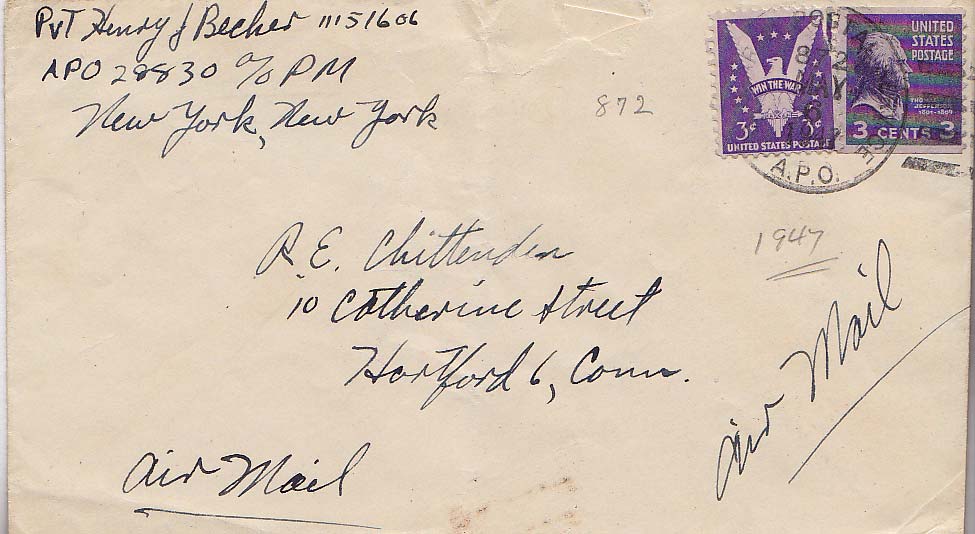 Pvt Henry J Becher 11151606
APO 28830 c/o PM
New York, New York
872
WIN THE WAR
3¢ 3¢
UNITED STATES POSTAGE
UNITED
STATES
POSTAGE
THOMAS
JEFFERSON
1801-1809
3 CENTS 3
872
MAY
6
A.P.O.
1947
R. E. Chittenden
10 Catherine Street
Hartford 6, Conn.
Air Mail
Air Mail